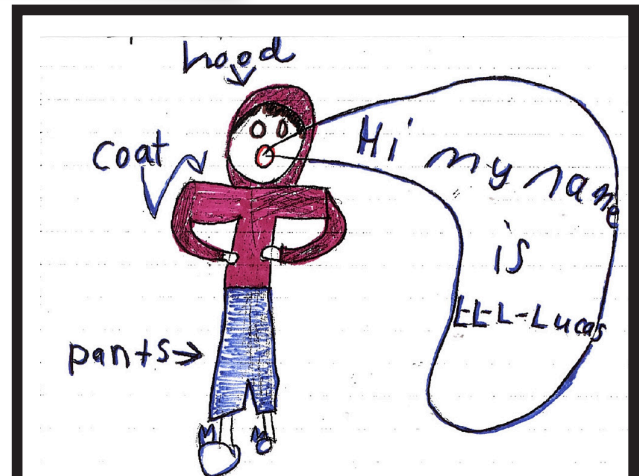 hood
coat
pants→
Hi my name
is
LL-L-Lucas